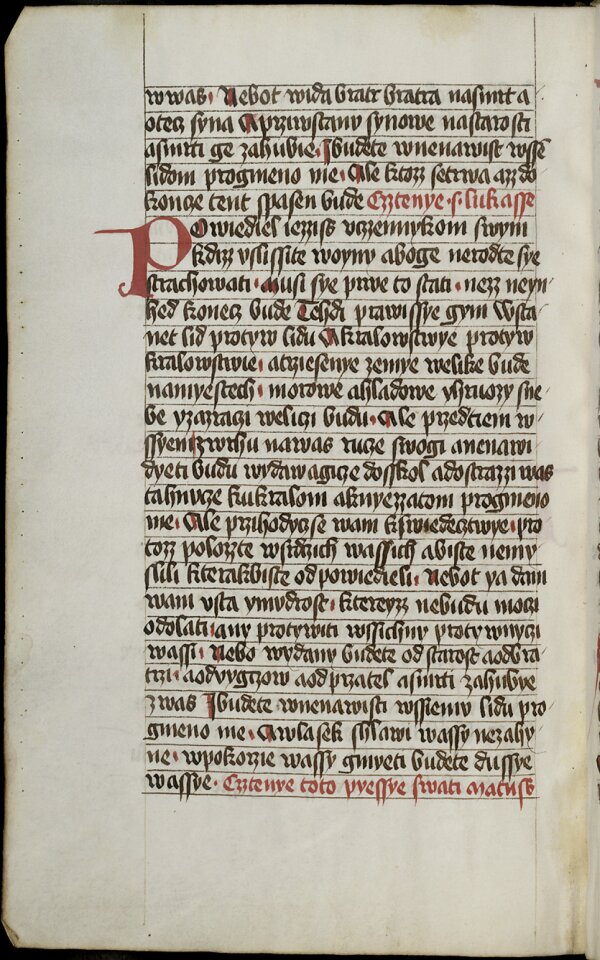 w was · Nebot wida bratr bratra nasmrt a
otecz syna A przivstanu synowe nastarosti
asmrti ge zahubie · Ibudete wnenawist wssē
lidom progmeno me · Ale ktozz setrwa azz do
koncze tent spasen bude Cztenye · s · lukasse
Powiediel iezziss vczennykom swym
kdizz vslissite woyny aboge nerodte sye
strachowati · Musi sye prwe to stati · nezz neyn
hed konecz bude Tehdi prawissye gym Wsta
net lid protyw lidu A kralowstwye protyw
kralowstwie · atrziesenye zemye welike bude
namyestech · morowe ahladowe yhruozy sne
be yzazraczi weliczi budu · Ale przedtiem w
ssyem zwrhu nawas rucze swogi anenawi
dyeti budu wydawagicze dosskol adostrazzi was
tahnucze kukralom aknyezzatom progmeno
me · Ale przihodyczse wam kswiedecztwye · pro
tozz polozte wsrdzich wassich abiste nemy
slili kterakbiste odpowiedieli · Nebot ya dam
wam vsta ymudrost · kereyzz nebudu moczi
odolati · any protywiti wssichny protywnyczi
wassi · Nebo wydany budete od starost aodbra
trzi · aodvygczow aod przatel asmrti zahubye
zwas Ibudete wnenawisti wssiemu lidu pro
gmeno me · Awlasek shlawi wassy nezahy
ne · wpokorzie wassy gmyeti budete dussye
wassye · Cztenye toto pyessye swati Matuss